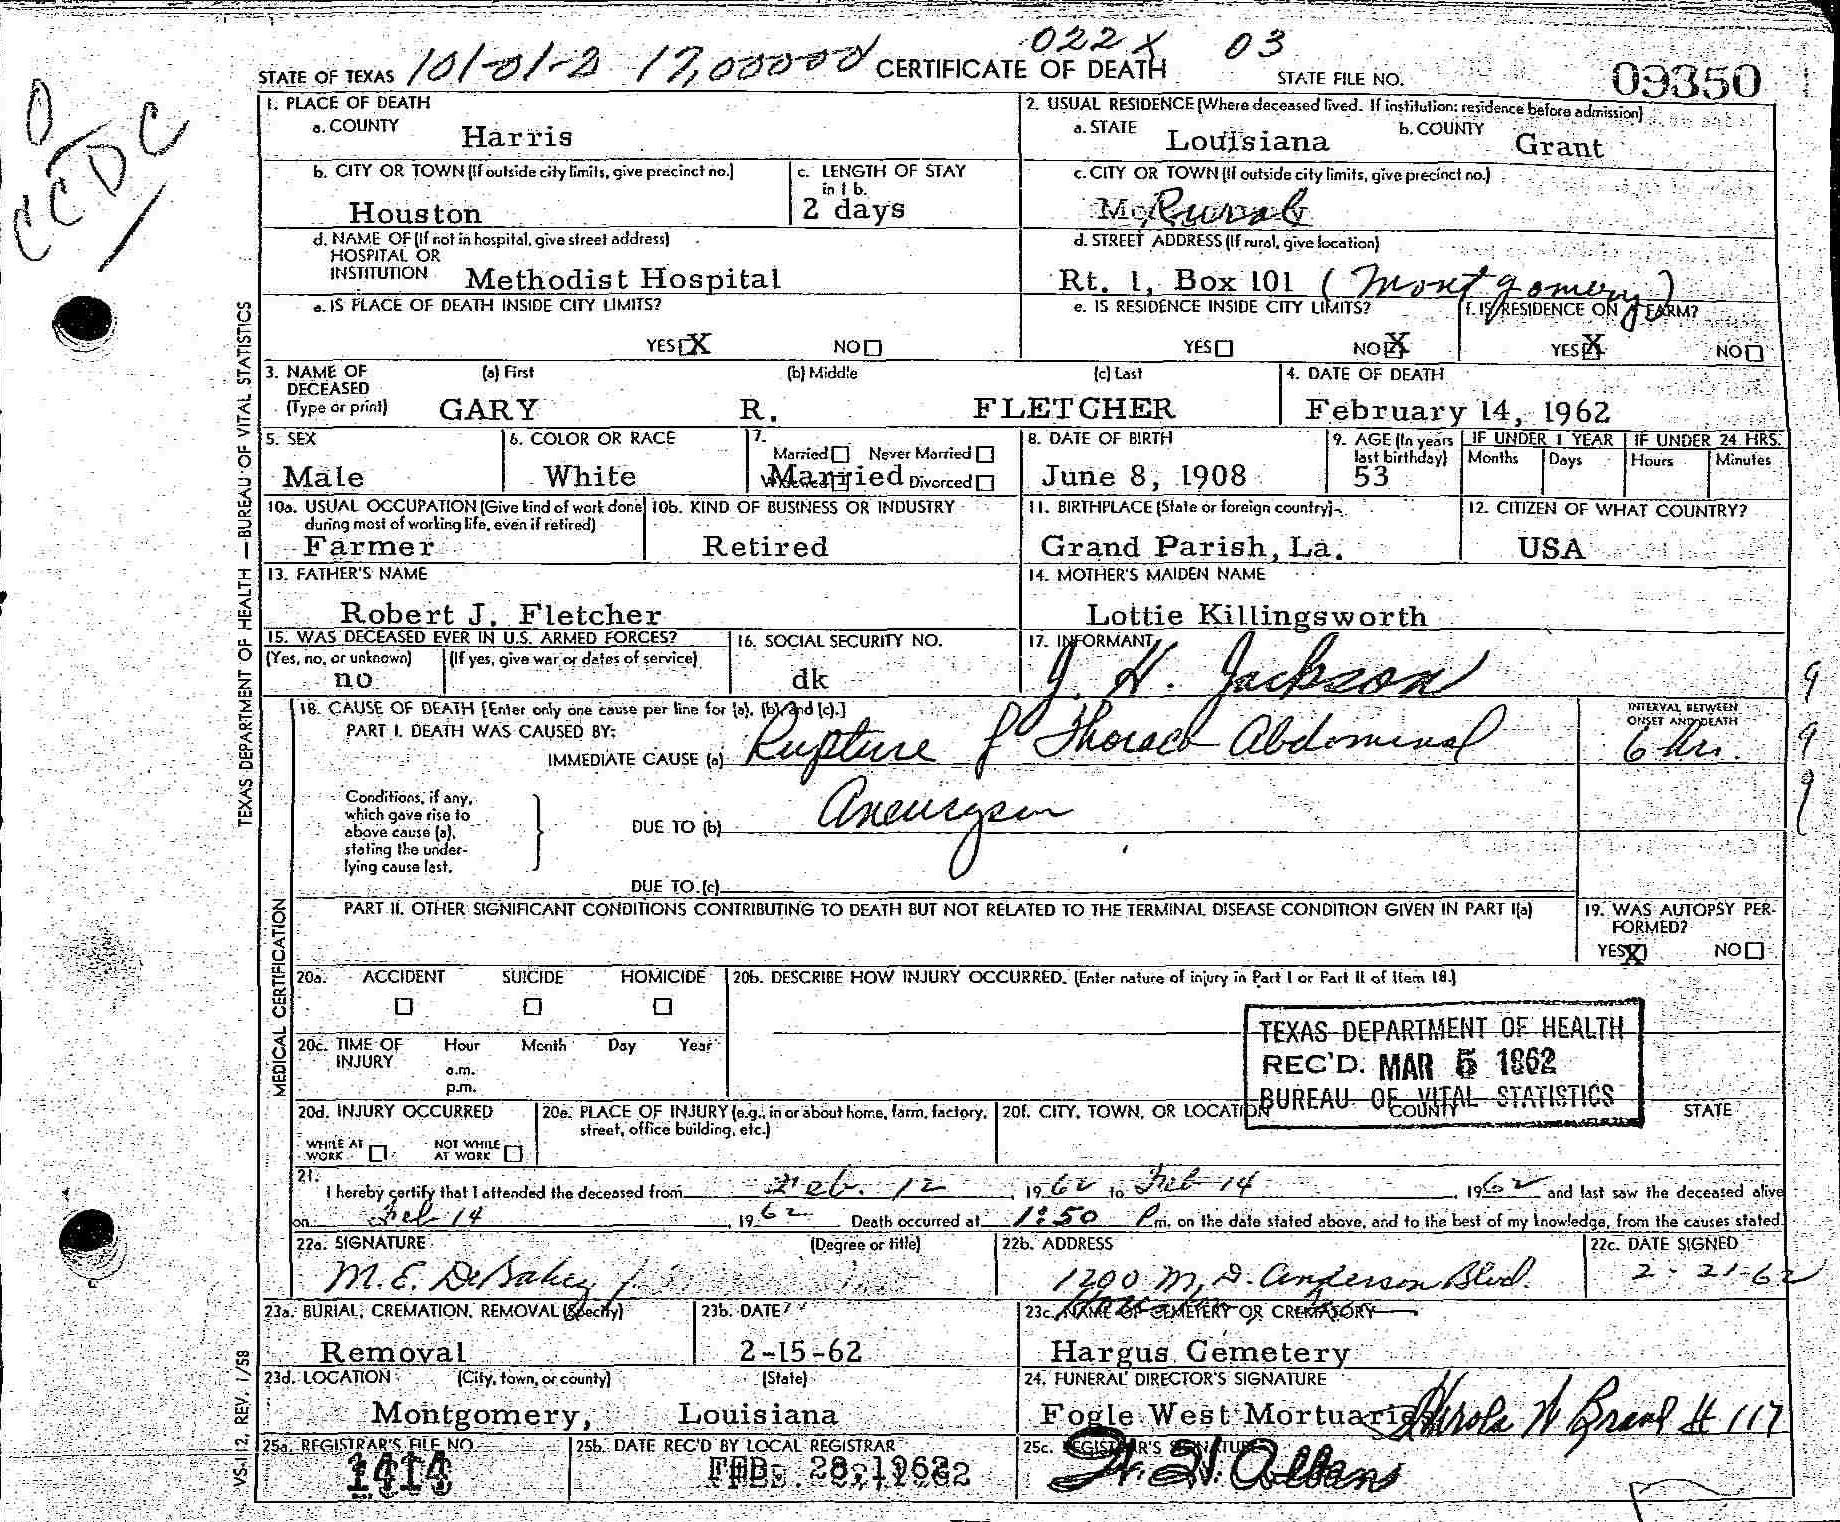 022 X 03
STATE OF TEXAS 101-01-2 17,00000 CERTIFICATE OF DEATH STATE FILE NO. 09350
CCDC
1. PLACE OF DEATH
a. COUNTY Harris
2. USUAL RESIDENCE (Where deceased lived. If institution: residence before admission)
a. STATE Louisiana b. COUNTY Grant
b. CITY OR TOWN (If outside city limits, give precinct no.) Houston
c. LENGTH OF STAY in 1 b. 2 days
c. CITY OR TOWN (If outside city limits, give precinct no.) Rural
d. NAME OF (If not in hospital, give street address)
HOSPITAL OR
INSTITUTION Methodist Hospital
d. STREET ADDRESS (If rural, give location)
Rt. 1, Box 101 (Montgomery)
e. IS PLACE OF DEATH INSIDE CITY LIMITS?
YES X NO
e. IS RESIDENCE INSIDE CITY LIMITS?
YES NO X
f. IS RESIDENCE ON A FARM?
YES X NO
3. NAME OF DECEASED (Type or print)
(a) First (b) Middle (c) Last
GARY R. FLETCHER
4. DATE OF DEATH
February 14, 1962
5. SEX
Male
6. COLOR OR RACE
White
7. Married Never Married
Widowed Divorced
Married
8. DATE OF BIRTH
June 8, 1908
9. AGE (In years last birthday)
53
IF UNDER 1 YEAR
Months Days
IF UNDER 24 HRS.
Hours Minutes
10a. USUAL OCCUPATION (Give kind of work done during most of working life, even if retired)
Farmer
10b. KIND OF BUSINESS OR INDUSTRY
Retired
11. BIRTHPLACE (State or foreign country)
Grand Parish, La.
12. CITIZEN OF WHAT COUNTRY?
USA
13. FATHER'S NAME
Robert J. Fletcher
14. MOTHER'S MAIDEN NAME
Lottie Killingsworth
15. WAS DECEASED EVER IN U.S. ARMED FORCES?
(Yes, no, or unknown) (If yes, give war or dates of service)
no
16. SOCIAL SECURITY NO.
dk
17. INFORMANT
J. H. Jackson
18. CAUSE OF DEATH [Enter only one cause per line for (a), (b), and (c).]
PART I. DEATH WAS CAUSED BY:
IMMEDIATE CAUSE (a) Rupture of Thoraco Abdominal
INTERVAL BETWEEN ONSET AND DEATH
6 hrs.
9
9
9
Conditions, if any, which gave rise to above cause (a), stating the underlying cause last.
DUE TO (b) Aneurysm
DUE TO (c)
PART II. OTHER SIGNIFICANT CONDITIONS CONTRIBUTING TO DEATH BUT NOT RELATED TO THE TERMINAL DISEASE CONDITION GIVEN IN PART I(a)
19. WAS AUTOPSY PERFORMED?
YES X NO
20a. ACCIDENT SUICIDE HOMICIDE
20b. DESCRIBE HOW INJURY OCCURRED. (Enter nature of injury in Part I or Part II of item 18.)
20c. TIME OF INJURY Hour Month Day Year
a.m.
p.m.
TEXAS DEPARTMENT OF HEALTH
REC'D. MAR 5 1962
BUREAU OF VITAL STATISTICS
20d. INJURY OCCURRED
WHILE AT WORK NOT WHILE AT WORK
20e. PLACE OF INJURY (e.g., in or about home, farm, factory, street, office building, etc.)
20f. CITY, TOWN, OR LOCATION COUNTY STATE
21. I hereby certify that I attended the deceased from Feb. 12, 1962 to Feb 14, 1962 and last saw the deceased alive
on Feb 14, 1962 Death occurred at 1:50 P m. on the date stated above, and to the best of my knowledge, from the causes stated.
22a. SIGNATURE (Degree or title)
M. E. DeBakey
22b. ADDRESS
1200 M. D. Anderson Blvd.
Houston
22c. DATE SIGNED
2-21-62
23a. BURIAL, CREMATION, REMOVAL (Specify)
Removal
23b. DATE
2-15-62
23c. NAME OF CEMETERY OR CREMATORY
Hargus Cemetery
23d. LOCATION (City, town, or county) (State)
Montgomery, Louisiana
24. FUNERAL DIRECTOR'S SIGNATURE
Fogle West Mortuaries # 117
25a. REGISTRAR'S FILE NO.
1414
25b. DATE REC'D BY LOCAL REGISTRAR
FEB. 28, 1962
25c. REGISTRAR'S SIGNATURE
TEXAS DEPARTMENT OF HEALTH — BUREAU OF VITAL STATISTICS
MEDICAL CERTIFICATION
VS-112, REV. 1/58